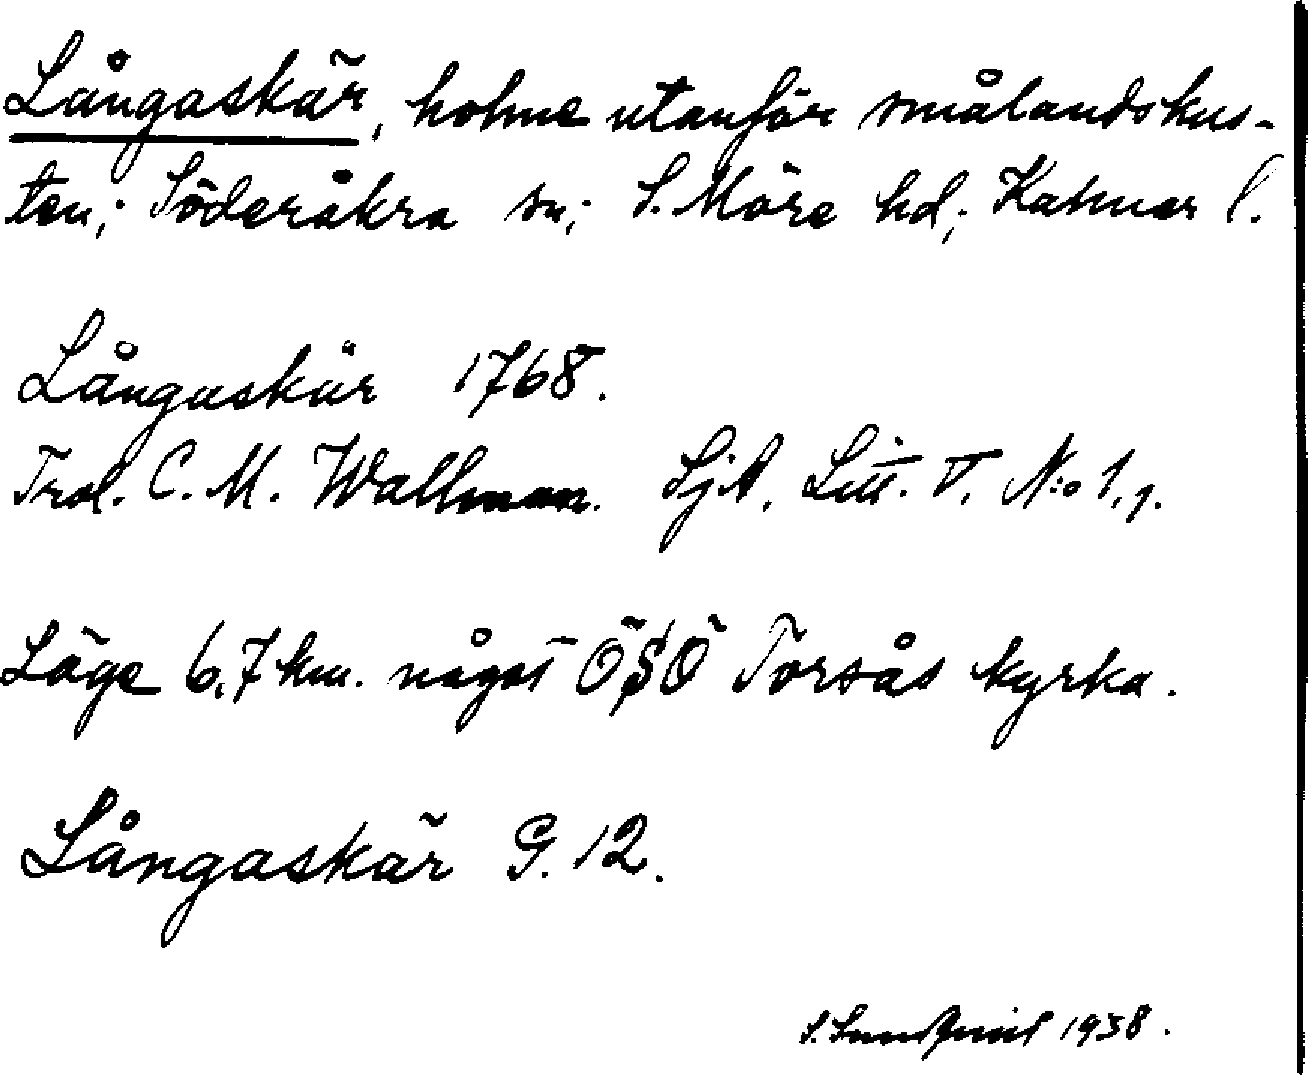 Långaskär, holme utanför smålandskus-
ten; Söderåkra sn; S. Möre hd; Kalmar l.
Långaskär 1768.
Trol. C. M. Wallman. SjA. Litt. V. N:o 1,
Läge 6,7 km. något ÖSÖ Torsås kyrka.
Långaskär G. 12.
S. Sundqvist 1938.